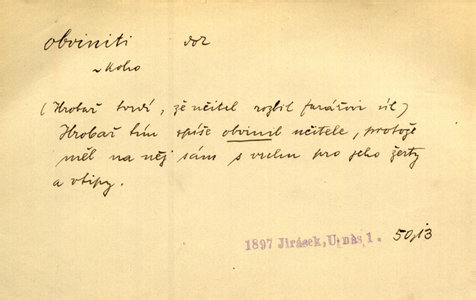 obviniti dok
~ koho
(Hrobař tvrdí, že učitel rozbil farářovi úl)
Hrobař tím spíše obvinil učitele, protože
měl na něj sám s vrchu pro jeho žerty
a vtipy.
1897 Jirásek, U nás 1. 50/13